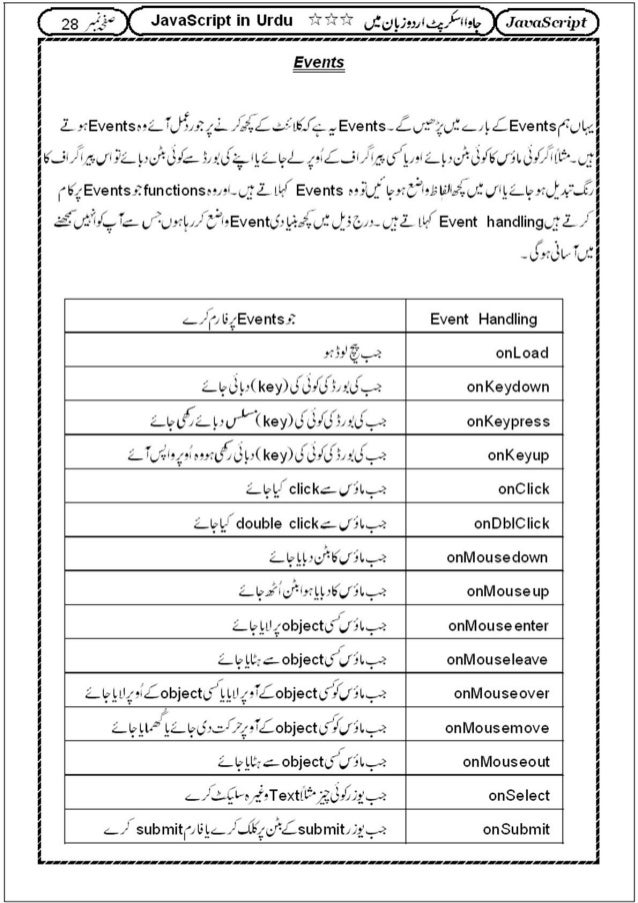 JavaScript جاوا اسکرپٹ اردو زبان میں ☆☆☆ JavaScript in Urdu صفحہ نمبر 28
Events
یہاں ہم Events کے بارے میں پڑھیں گے۔ Events یہ ہے کہ کلائنٹ کے کچھ کرنے پر جو ردعمل آئے وہ Events ہوتے
ہیں۔ مثلاً اگر کوئی ماؤس کا کوئی بٹن دبائے اور یا کسی پیراگراف کے اُوپر لے جائے یا اپنے کی بورڈ سے کوئی بٹن دبائے تو اس پیراگراف کا
رنگ تبدیل ہو جائے یا اس میں کچھ الفاظ واضع ہو جائیں تو وہ Events کہلاتے ہیں۔ اور وہ functions جو Events پر کام
کرتے ہیں Event handling کہلاتے ہیں۔ درج ذیل میں کچھ بنیادی Event واضع کر رہا ہوں جس سے آپ کو انہیں سمجھنے
میں آسانی ہوگی۔
Event Handling جو Events پرفارم کرے
onLoad جب پیج لوڈ ہو
onKeydown جب کی بورڈ کی کوئی کی (key) دبائی جائے
onKeypress جب کی بورڈ کی کوئی کی (key) مسلسل دبائے رکھی جائے
onKeyup جب کی بورڈ کی کوئی کی (key) دبائی رکھی ہو وہ اُوپر واپس آئے
onClick جب ماؤس سے click کیا جائے
onDblClick جب ماؤس سے double click کیا جائے
onMousedown جب ماؤس کا بٹن دبایا جائے
onMouseup جب ماؤس کا دبایا ہوا بٹن اُٹھ جائے
onMouseenter جب ماؤس کسی object پر لایا جائے
onMouseleave جب ماؤس کسی object سے ہٹایا جائے
onMouseover جب ماؤس کو کسی object کے اُوپر لایا یا کسی object کے اُوپر لایا جائے
onMousemove جب ماؤس کو کسی object کے اُوپر حرکت دی جائے یا گھمایا جائے
onMouseout جب ماؤس کسی object سے ہٹایا جائے
onSelect جب یوزر کوئی چیز مثلاً Text وغیرہ سلیکٹ کرے
onSubmit جب یوزر submit کے بٹن پر کلک کرے یا فارم submit کرے